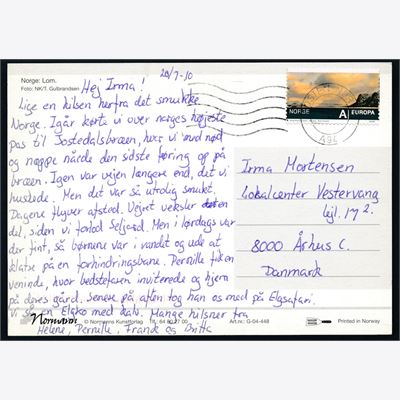 20/7-10
Norge: Lom.
Foto: NK/T. Gulbrandsen
Hej Irma!
Lige en hilsen herfra det smukke
Norge. Igår kørte vi over norges højeste
pas til Jostedalsbræen, hvor vi med nød
og næppe nåede den sidste føring op på
bræen. Igen var vejen længere end, det vi
huskede. Men det var så utrolig smukt.
Dagene flyver afsted. Vejret veksler en
del, siden vi forlod Seljord. Men i lørdags var
der fint, så børnene var i vandet og ude at
klatre på en forhindringsbane. Pernille fik en
veninde, hvor bedstefaren inviterede og hjem
på deres gård. Senere på aften tog han os med på Elgsafari.
Vi så en Elgko med kalv. Mange hilsner fra
Helene, Pernille, Frank og Britta
NORGE
A
EUROPA
Irma Mortensen
Lokalcenter Vestervang
lejl. 192.
8000 Århus C.
Danmark
Normanns
© Normanns Kunstforlag Tlf.: 64 83 27 00
Art.nr.: G-04-448
Printed in Norway